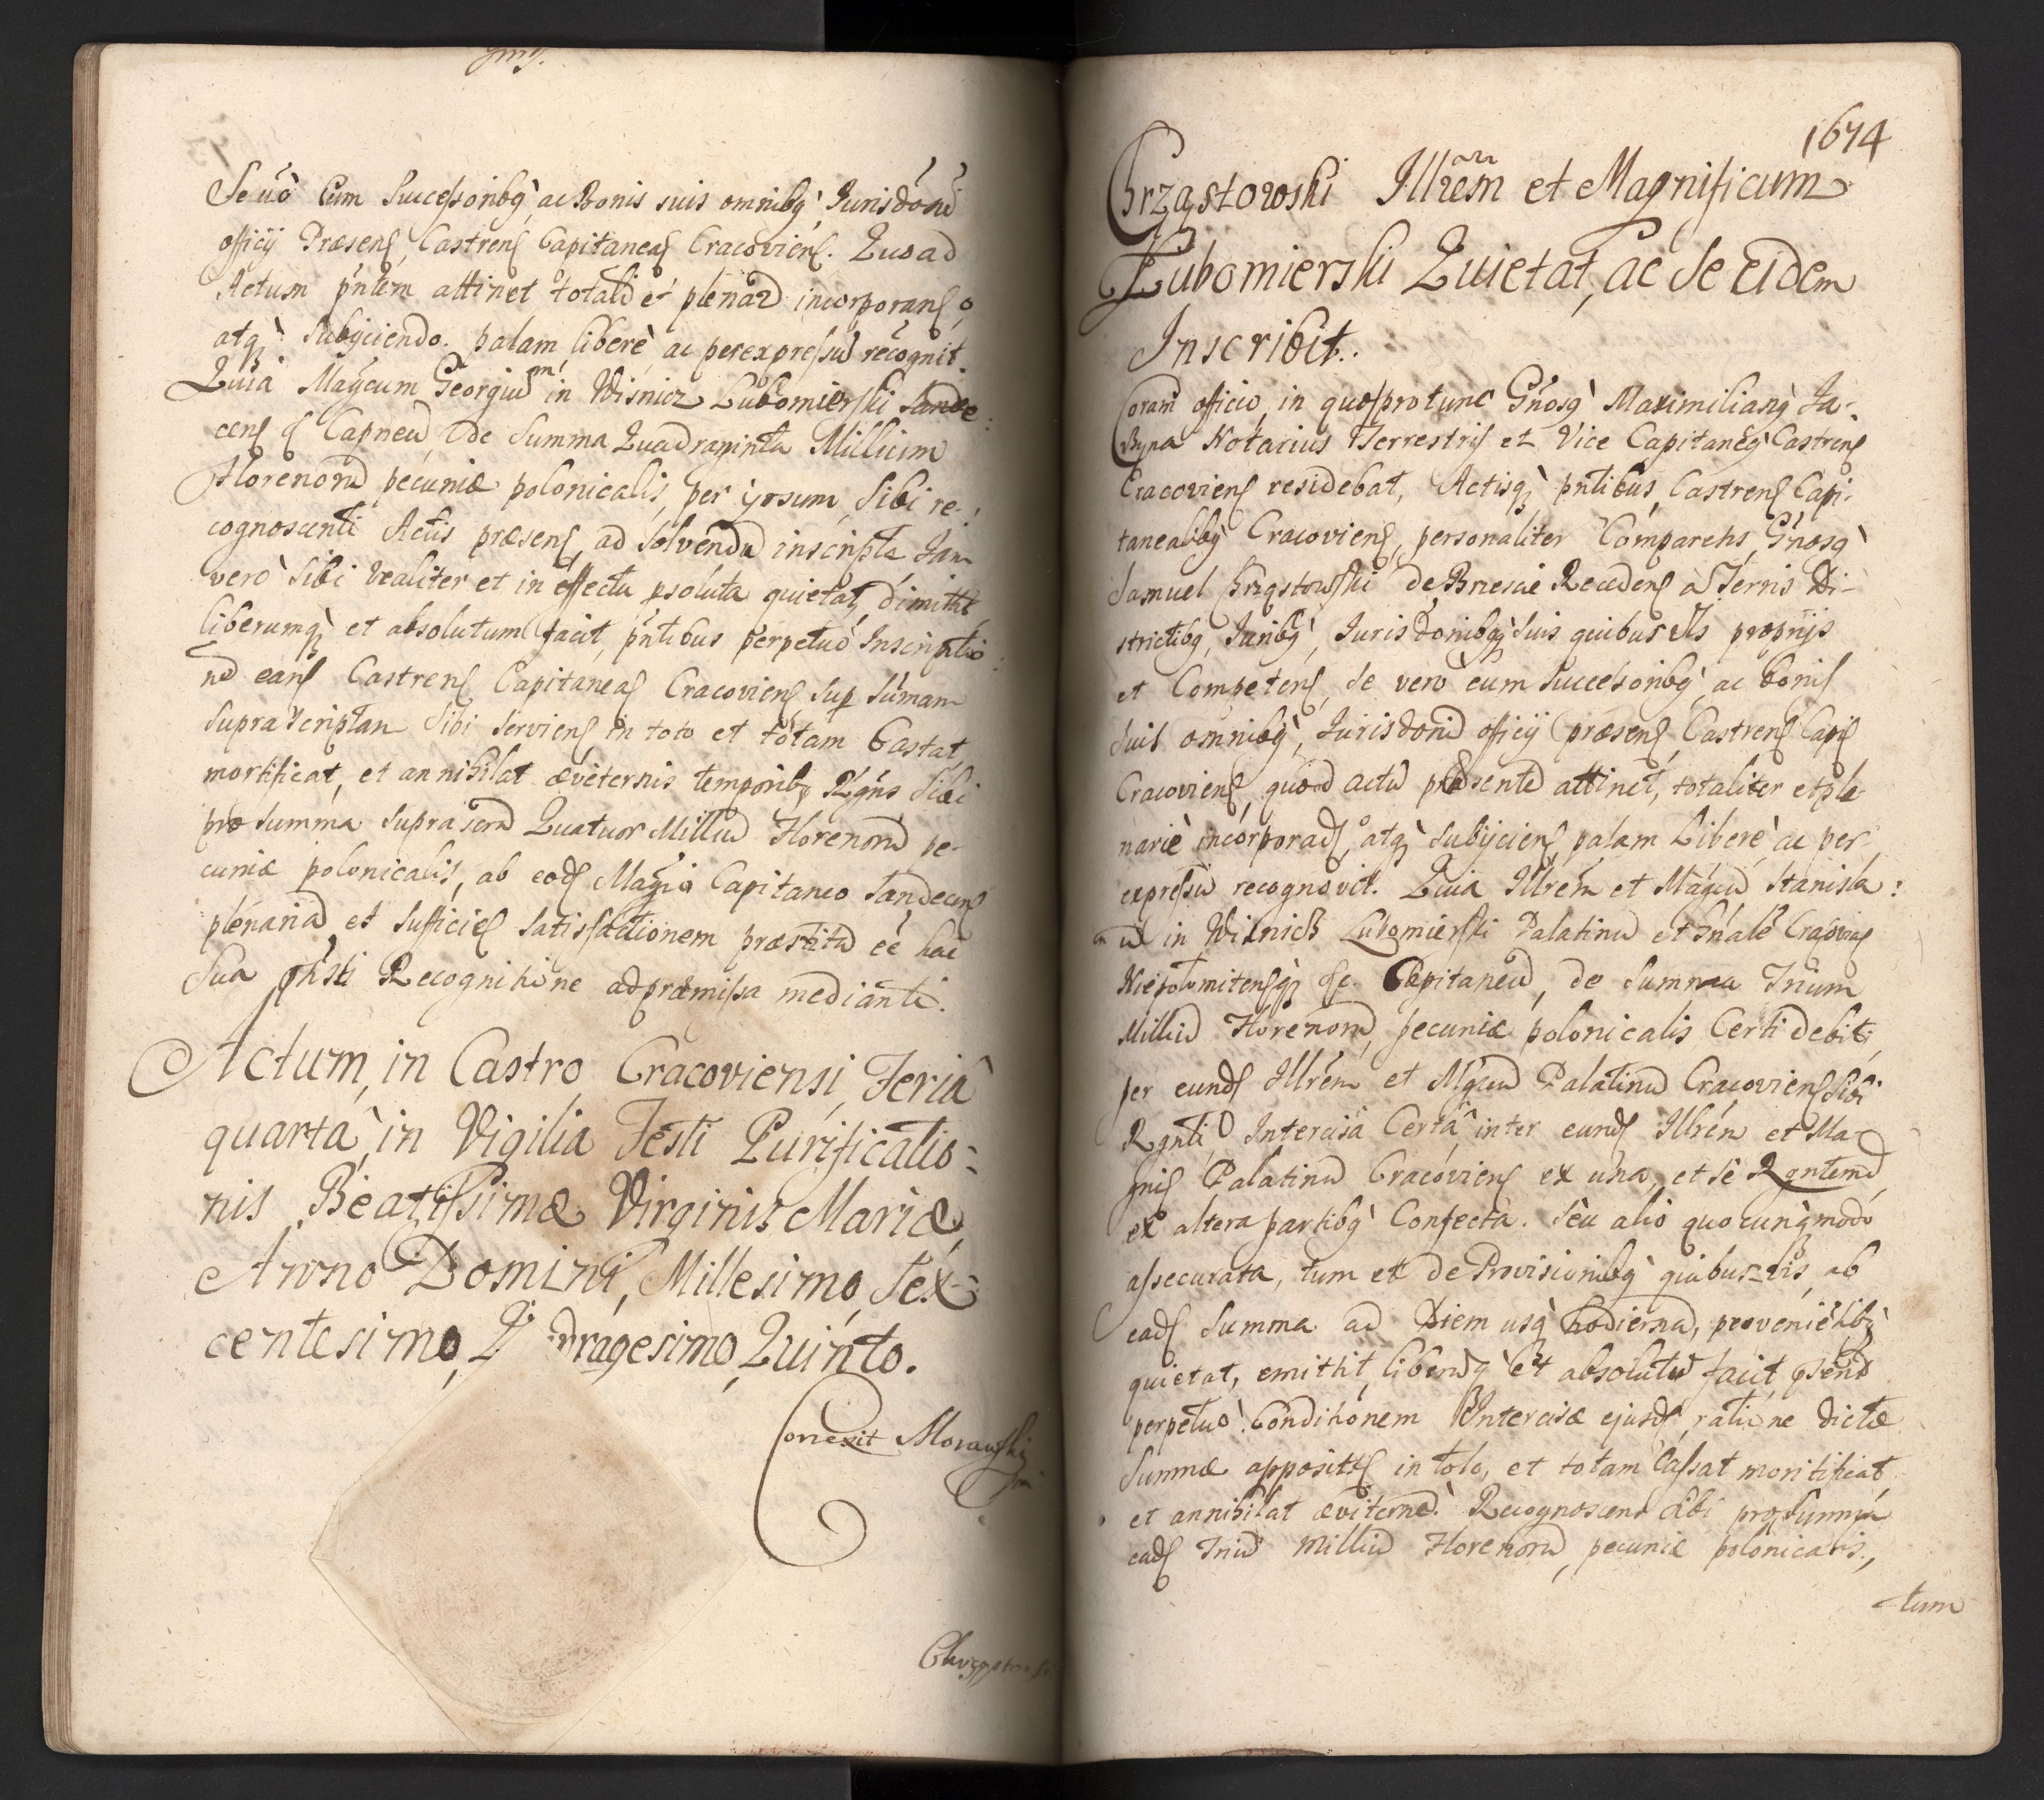 Se uo Cum Successoribq ac Bonis suis omnibq Jurisdoni
officij Præsens, Castrens Capitaneas Cracoviens. Quoad
Actum pntem attinet totalr et plenar incorporans
atq subijciendo. palam liberè ac per expressu recognit.
Quia Magcum Georgium in Wisnicz Lubomierski Sande
cens & Capneu de Summa Quadraginta Millium
Florenoru pecuniæ polonicalis, per ipsum, Sibi re-
cognoscenti Actis præsens ad solvendu inscripta Jam
verò sibi realiter et in effectu psoluta quietat, dimittit
liberumq et absolutum facit, pntibus perpetuò Inscriptio
nd eans Castrens Capitaneas Cracoviens sup Suman
suprascriptan Sibi serviens in toto et totam Castat
mortificat, et annihilat æviternis temporibq Rgns Sibi
pro summa suprascra Quatuor Milliu Florenoru pe-
cuniæ polonicalis, ab eods Magco Capitaneo Sandecens
plenaria et sufficies satisfactionem præstita eè hac
Sua Recognitione ad præmissa medianti.
Actum, in Castro Cracoviensi, Feriâ
quarta in Vigilia Festi Purificatio-
nis Beatissimæ Virginis Mariæ,
Anno Domini, Millesimo, Sex-
centesimo, Q dragesimo, Quinto.
Correxit Morawski
1674
Chrząstowski Illrem et Magnificum
Lubomierski Quietat, ac Se Eidem
Inscribit.
Coram officio, in quo protunc Gnosq Maximilianq Ja-
Notarius Terrestris et Vice Capitaneq Castrens
Cracoviens residebat, Actisq pntibus Castrens Capi-
taneabbq Cracoviens, personaliter Comparens Gnosq
Samuel Chrząstowski de Brzescie Recedens à Terris Di-
strictibq, Juribq, Jurisdonibqq suis quibusvis proprijs
et Competens, Se vero cum successoribq ac bonis
suis omnibq, Jurisdonid officij præsens, Castrens Capis
Cracoviens, quoad actu præsente attinet, totaliter et ple
nariè incorporads, atq subijciens palam Liberè ac per
expressu recognovit. Quia Illrem et Magcu Stanisla:
u in Wisnicz Lubomierski Palatinu et Gnale Cracovias
Niepolomitensqq &c. Capitaneu, de Summa Trium
Milliu Florenoru, pecuniæ polonicalis Certi debiti,
per eunds Illrem et Mgcu Palatinu Cracoviens Sibi
Rgnti Intercisa Certa inter eunds Illrem et Ma-
gnis Palatinu Cracoviens ex una, et Se Rgntemd
ex altera partibq Confecta. Seu alio quocunqmodo
assecurata, tum et de Provisionibq quibusvis, ab
eads Summa ad Diem usq hodierna, provenientibq
quietat, emittit, liberuq et absolutu facit, psend
perpetuo. Conditionem Intercisæ ejusds, ratione dictæ
Summæ appositts in toto, et totam Cassat mortificat
et annihilat æviterne. Recognoscens sibi pro Summa
eads Triu Milliu Florenoru, pecuniæ polonicalis,
tum